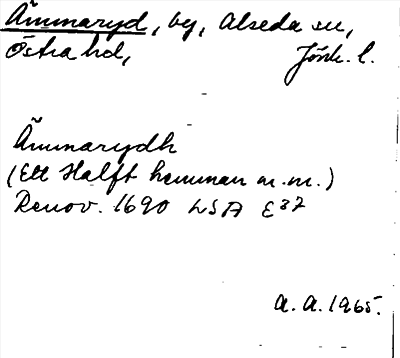 Ämmaryd, by, Alseda sn,
Östra hd, Jönk. l.
Ämmarydh
(Ett Halft hemman m.m.)
Renov. 1690 LSA E37
A. A. 1965.